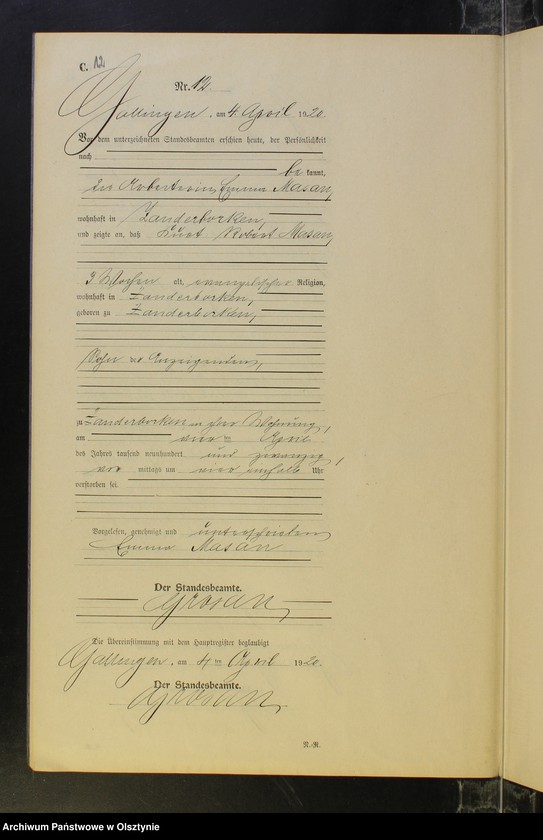 C. 12
Nr. 12.
Gallingen, am 4. April 1920
Vor dem unterzeichneten Standesbeamten erschien heute, der Persönlichkeit
nach
be kannt,
die Emma Masan,
wohnhaft in Zanderborken,
und zeigte an, daß Kurt Robert Masan,
3 Wochen alt, evangelischer Religion,
wohnhaft in Zanderborken,
geboren zu Zanderborken,
Sohn
zu Zanderborken in ihrer Wohnung,
am vier ten April
des Jahres tausend neunhundert und zwanzig,
vor mittags um vier einhalb Uhr
verstorben sei.
Vorgelesen, genehmigt und unterschrieben
Emma Masan
Der Standesbeamte.
Die Übereinstimmung mit dem Hauptregister beglaubigt
Gallingen, am 4ten April 1920.
Der Standesbeamte.
N.-R.
Archiwum Państwowe w Olsztynie